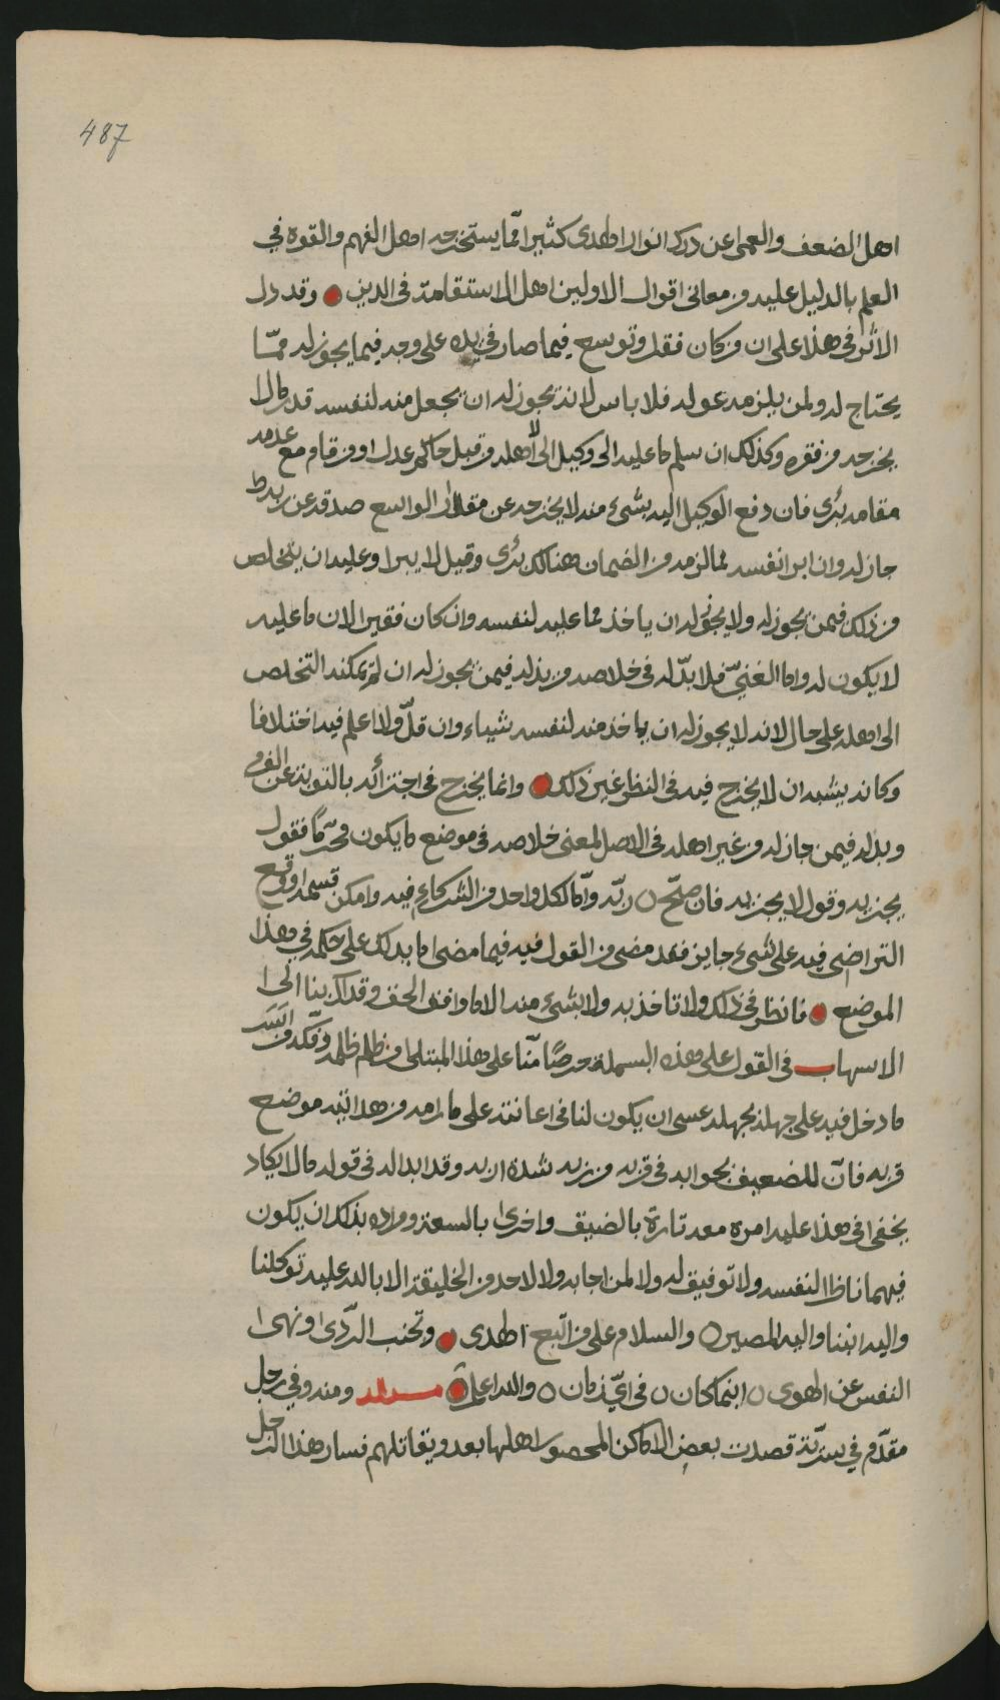 487
اهل الضعف والعمى عن درك انوار الهدى كثيرا مما يستخرجه اهل الفهم والقوة في
العلم بالدليل عليه من معاني اقوال الاولين اهل الاستقامة في الدين وقد دل
الاثر في هذا على ان من كان فقد وتوسع فيما صار في يده على وجه فيما يجوز له ممّا
يحتاج له ولمن يلزمه عوله فلا باس لانه يجوز له ان يجعل منه لنفسه قدر ما لا
يخرجه من فقره وكذلك ان سلم ما عليه الى وكيل الى اهله من قبل حاكم عدل او من قام مع عدمه
مقامه برى فان دفع الوكيل اليه بشيء منه لا يخرجه عن مقدار الواسع صدقة عن ربه
جاز له وان ابرا نفسه لما لزمه من الضمان هنالك برى وقيل لا يبرا وعليه ان يتخلص
من ذلك فيمن يجوز له ولا يجوز له ان ياخذ مما عليه لنفسه وان كان فقيرا لان ما عليه
لا يكون له واما الغنيّ فلا بدّ له في خلاصه من بذله فيمن يجوز له ان لم يمكنه التخلص
الى اهله على حال لانه لا يجوز له ان ياخذ منه لنفسه شيئا وان قلّ ولا اعلم فيه اختلافا
وكانه يشبه ان لا يخرج فيه في النظر غير ذلك وانما يخرج في اجتزائه بالتوبة عن
وبذله فيمن جاز له من غير اهله في الاصل لمعنى خلاصه في موضع ما يكون محرّمًا فقول
يجزيه وقول لا يجزيه فان صحّ ربّه وامّا لكل واحد من الشركاء فيه وامكن قسمه او وقع
التراضي فيه على شيء جايز فقد مضى من القول فيه فيما مضى ما يدلك على حكمه في هذا
الموضع فانظر في ذلك ولا تاخذ به ولا بشيء منه الا ما وافق الحق وقد اك بنا الى
الاسهاب في القول على هذه البسملة حرصًا منّا على هذا المبتلى من ظلم ظلمه
ما دخل فيه على جهله بجهله عسى ان يكون لنا في اعانته على ما رامه من هدايته موضع
قربه فانّ للضعيف بجوابه في قربه من ربه شدة اربه وقد ابدا له في قوله ما لا يكاد
يخفى في هذا عليه امره معه تارة بالضيق واخرى بالسعة ومراده بذلك ان يكون
فيهما ناظرا لنفسه ولا توفيق له ولا لمن اجابه ولا لاحد من الخليقة الا بالله عليه توكلنا
واليه انبنا واليه المصير والسلام على من اتّبع الهدى وتجنب الرّدى او نهى
النفس عن الهوى اينما كان في ايّ زمان والله اعلم مسالة ومنه وفي رجل
مقدّم في سريّة قصدت بعض الاماكن المحصور اهلها بعدو يقاتلهم فسار هذا الرجل